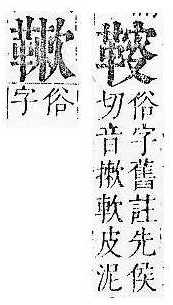 俗字舊註先侯
切音摗軟皮泥
俗
字